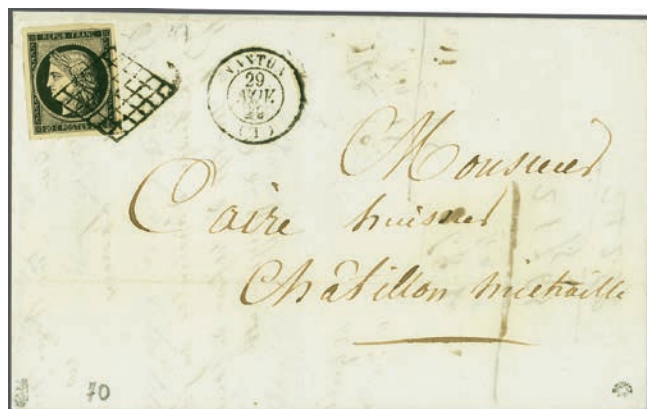 REPUB. FRANC.
20 C POSTES 20 C
NANTUA
29
NOV.
(1)
Monsieur
Caire huissier
Châtillon michaille
70